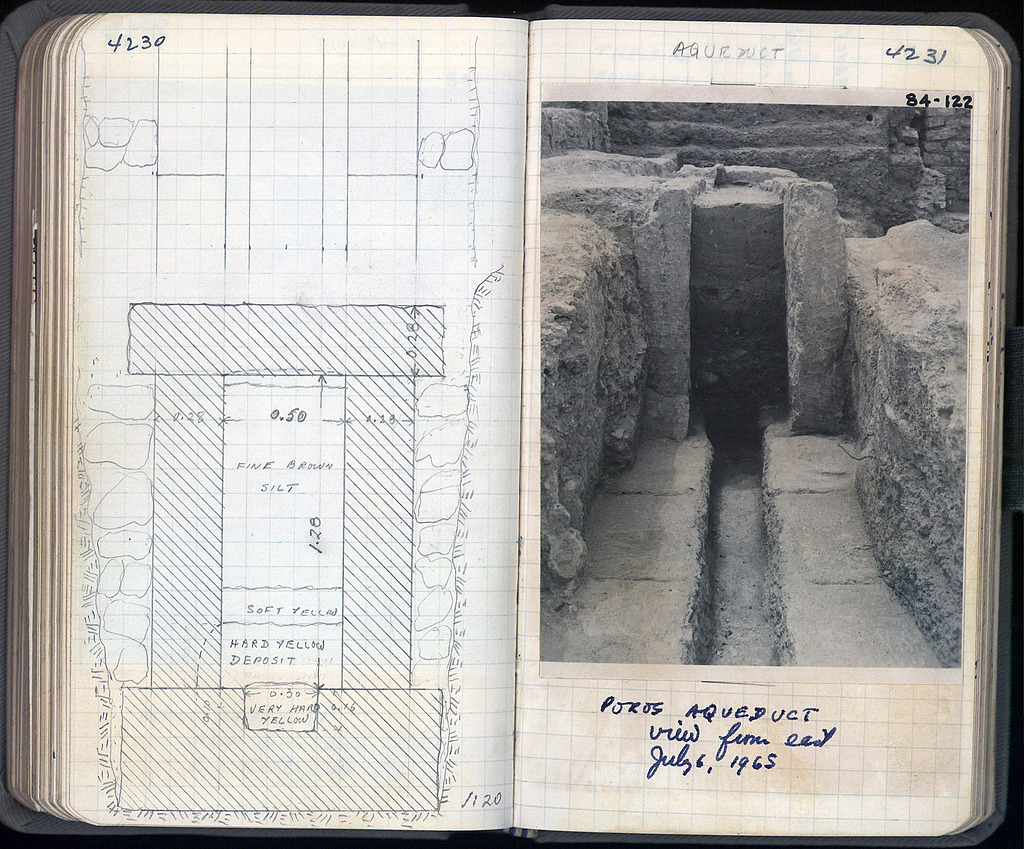 4230
0.28
0.28
0.50
0.28
FINE BROWN
SILT
1.28
SOFT YELLOW
HARD YELLOW
DEPOSIT
0.30
VERY HARD
YELLOW
0.16
1:20
AQUEDUCT
4231
84-122
POROS AQUEDUCT
view from east
July 6, 1965